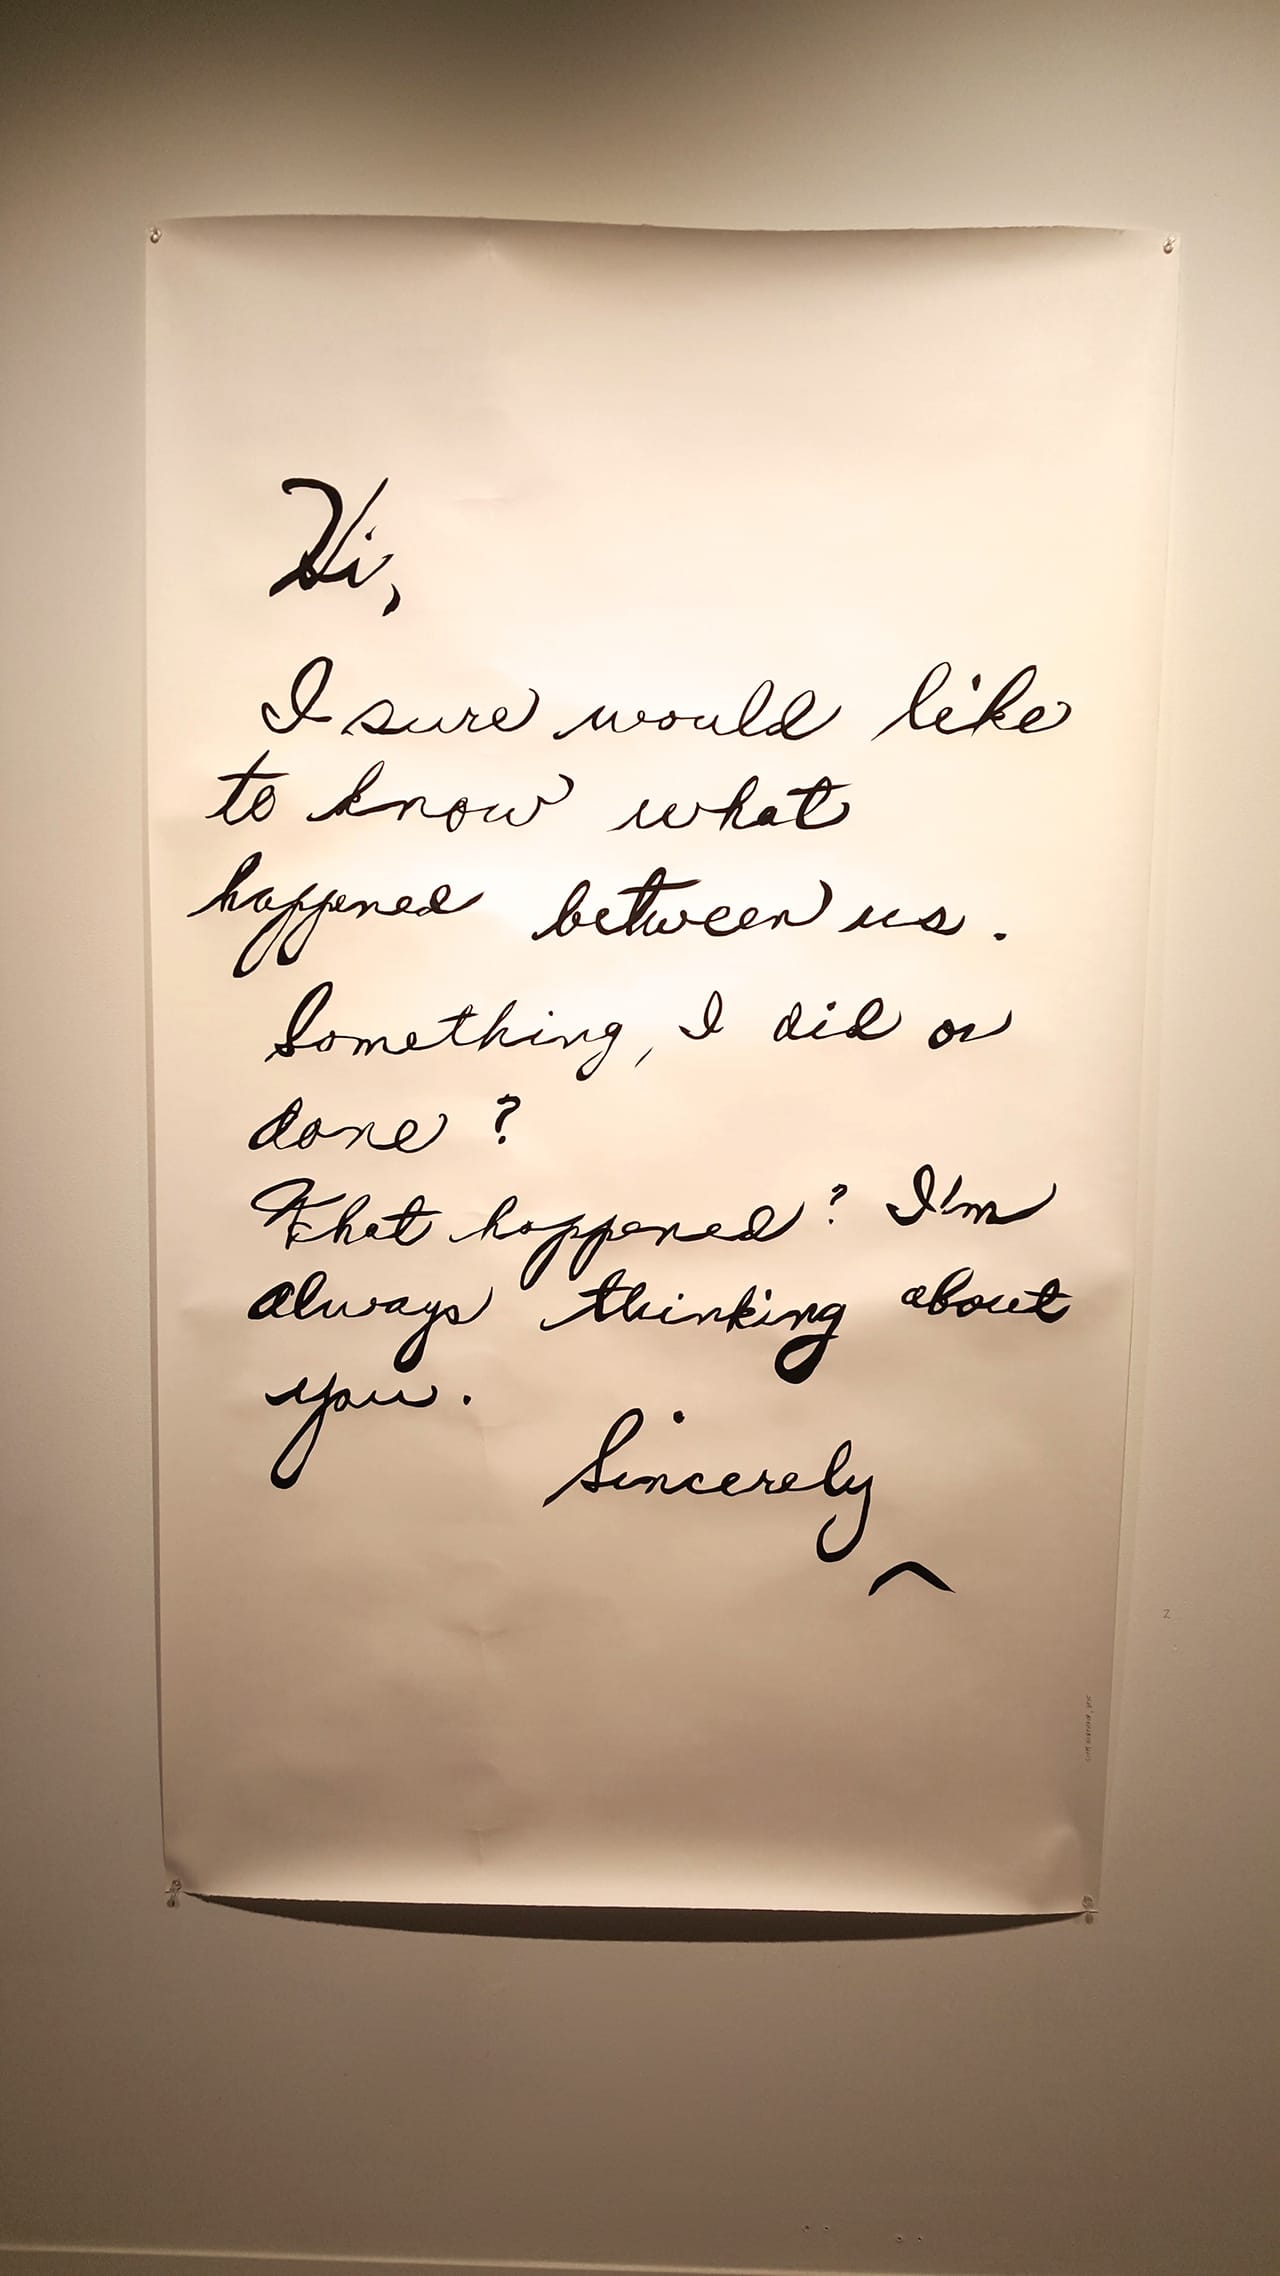 Hi,
I sure would like
to know what
happened between us.
Something, I did or
done?
What happened? I'm
always thinking about
you.
Sincerely
^
2